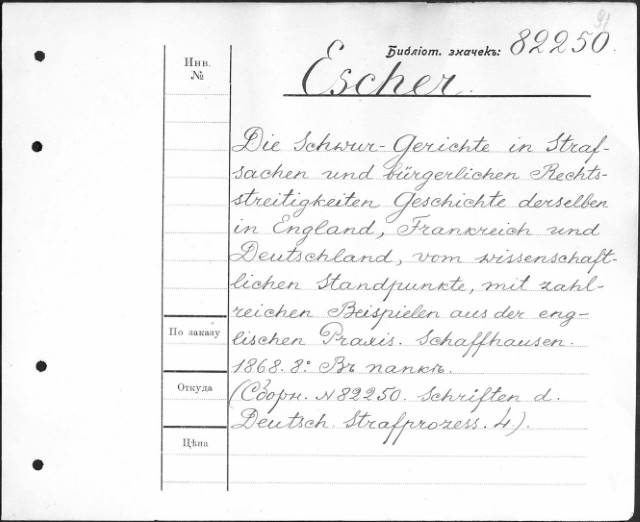 91
Библіот. значекъ: 82250.
Escher.
Инв.
№
Die Schwur-Gerichte in Straf-
sachen und bürgerlichen Rechts-
streitigkeiten Geschichte derselben
in England, Frankreich und
Deutschland, vom wissenschaft-
lichen Standpunkte, mit zahl-
reichen Beispielen aus der eng-
lischen Praxis. Schaffhausen.
1868. 8º. Въ папкѣ.
(Сборн. N 82250. Schriften d.
Deutsch. Strafprozess. 4.).
По заказу
Откуда
Цѣна